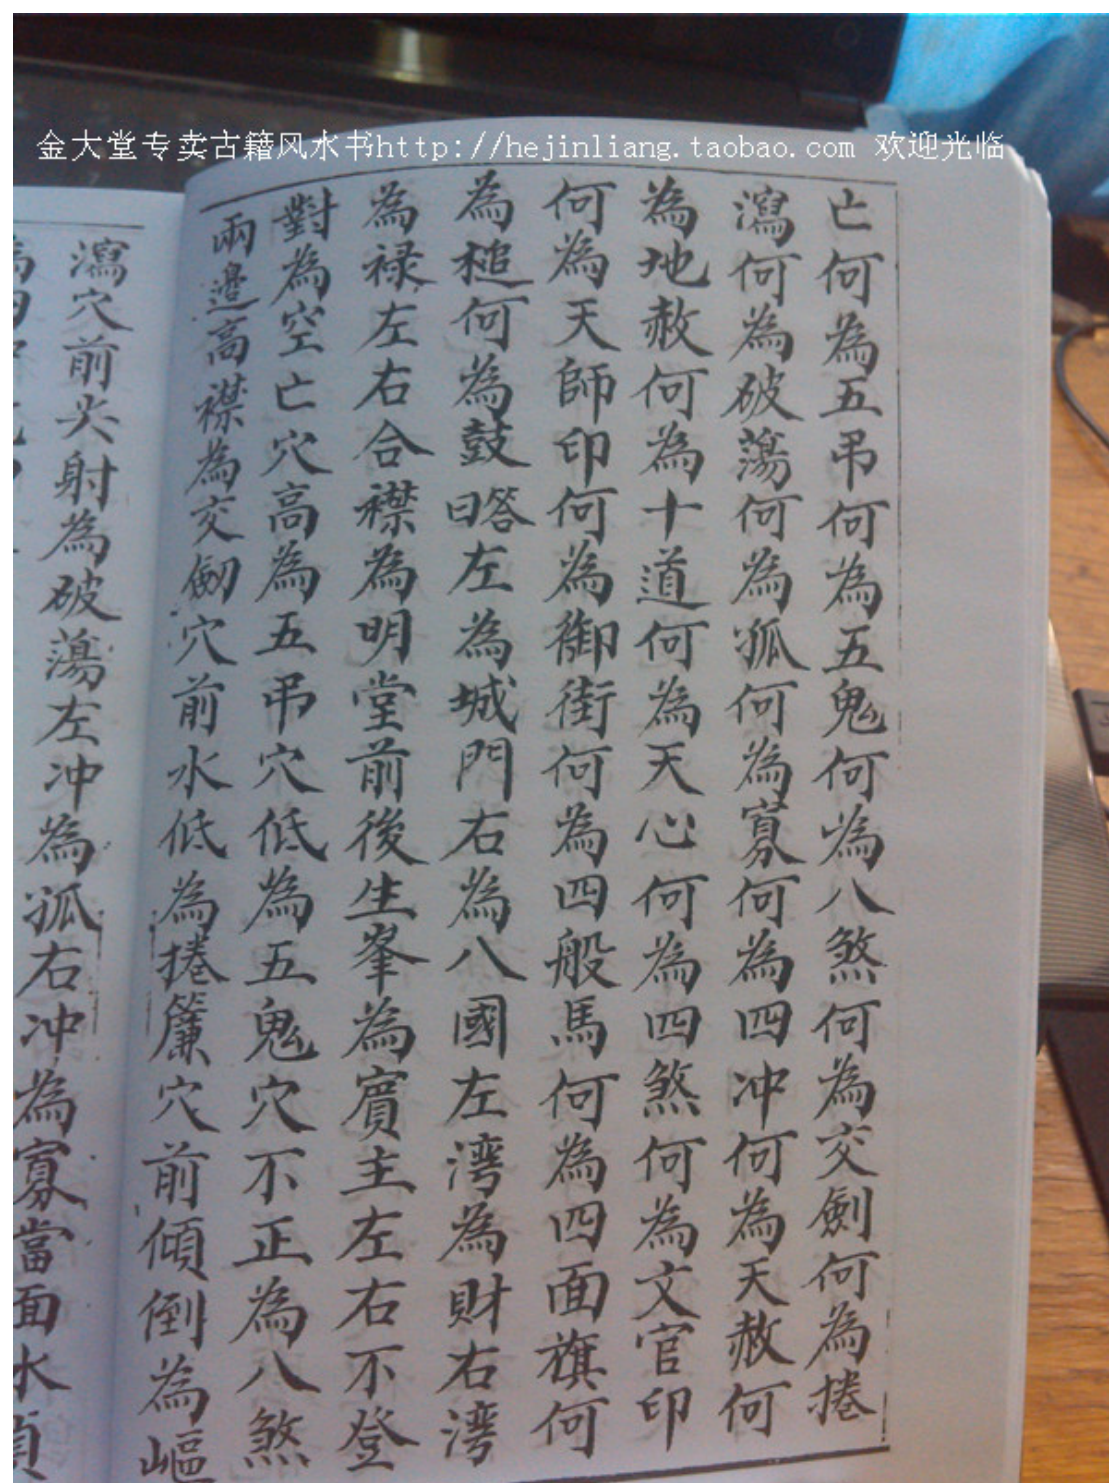 金大堂专卖古籍风水书http://hejinliang.taobao.com 欢迎光临
亡何為五吊何為五鬼何為八煞何為交劍何為捲
瀉何為破蕩何為孤何為寡何為四冲何為天赦何
為地赦何為十道何為天心何為四煞何為文官印
何為天師印何為御街何為四般馬何為四面旗何
為槌何為鼓答曰左為城門右為八國左湾為財右湾
為禄左右合襟為明堂前後生峯為賓主左右不登
對為空亡穴高為五吊穴低為五鬼穴不正為八煞
兩邉高襟為交劒穴前水低為捲簾穴前傾倒為嶇
瀉穴前尖射為破蕩左冲為孤右冲為寡當面水